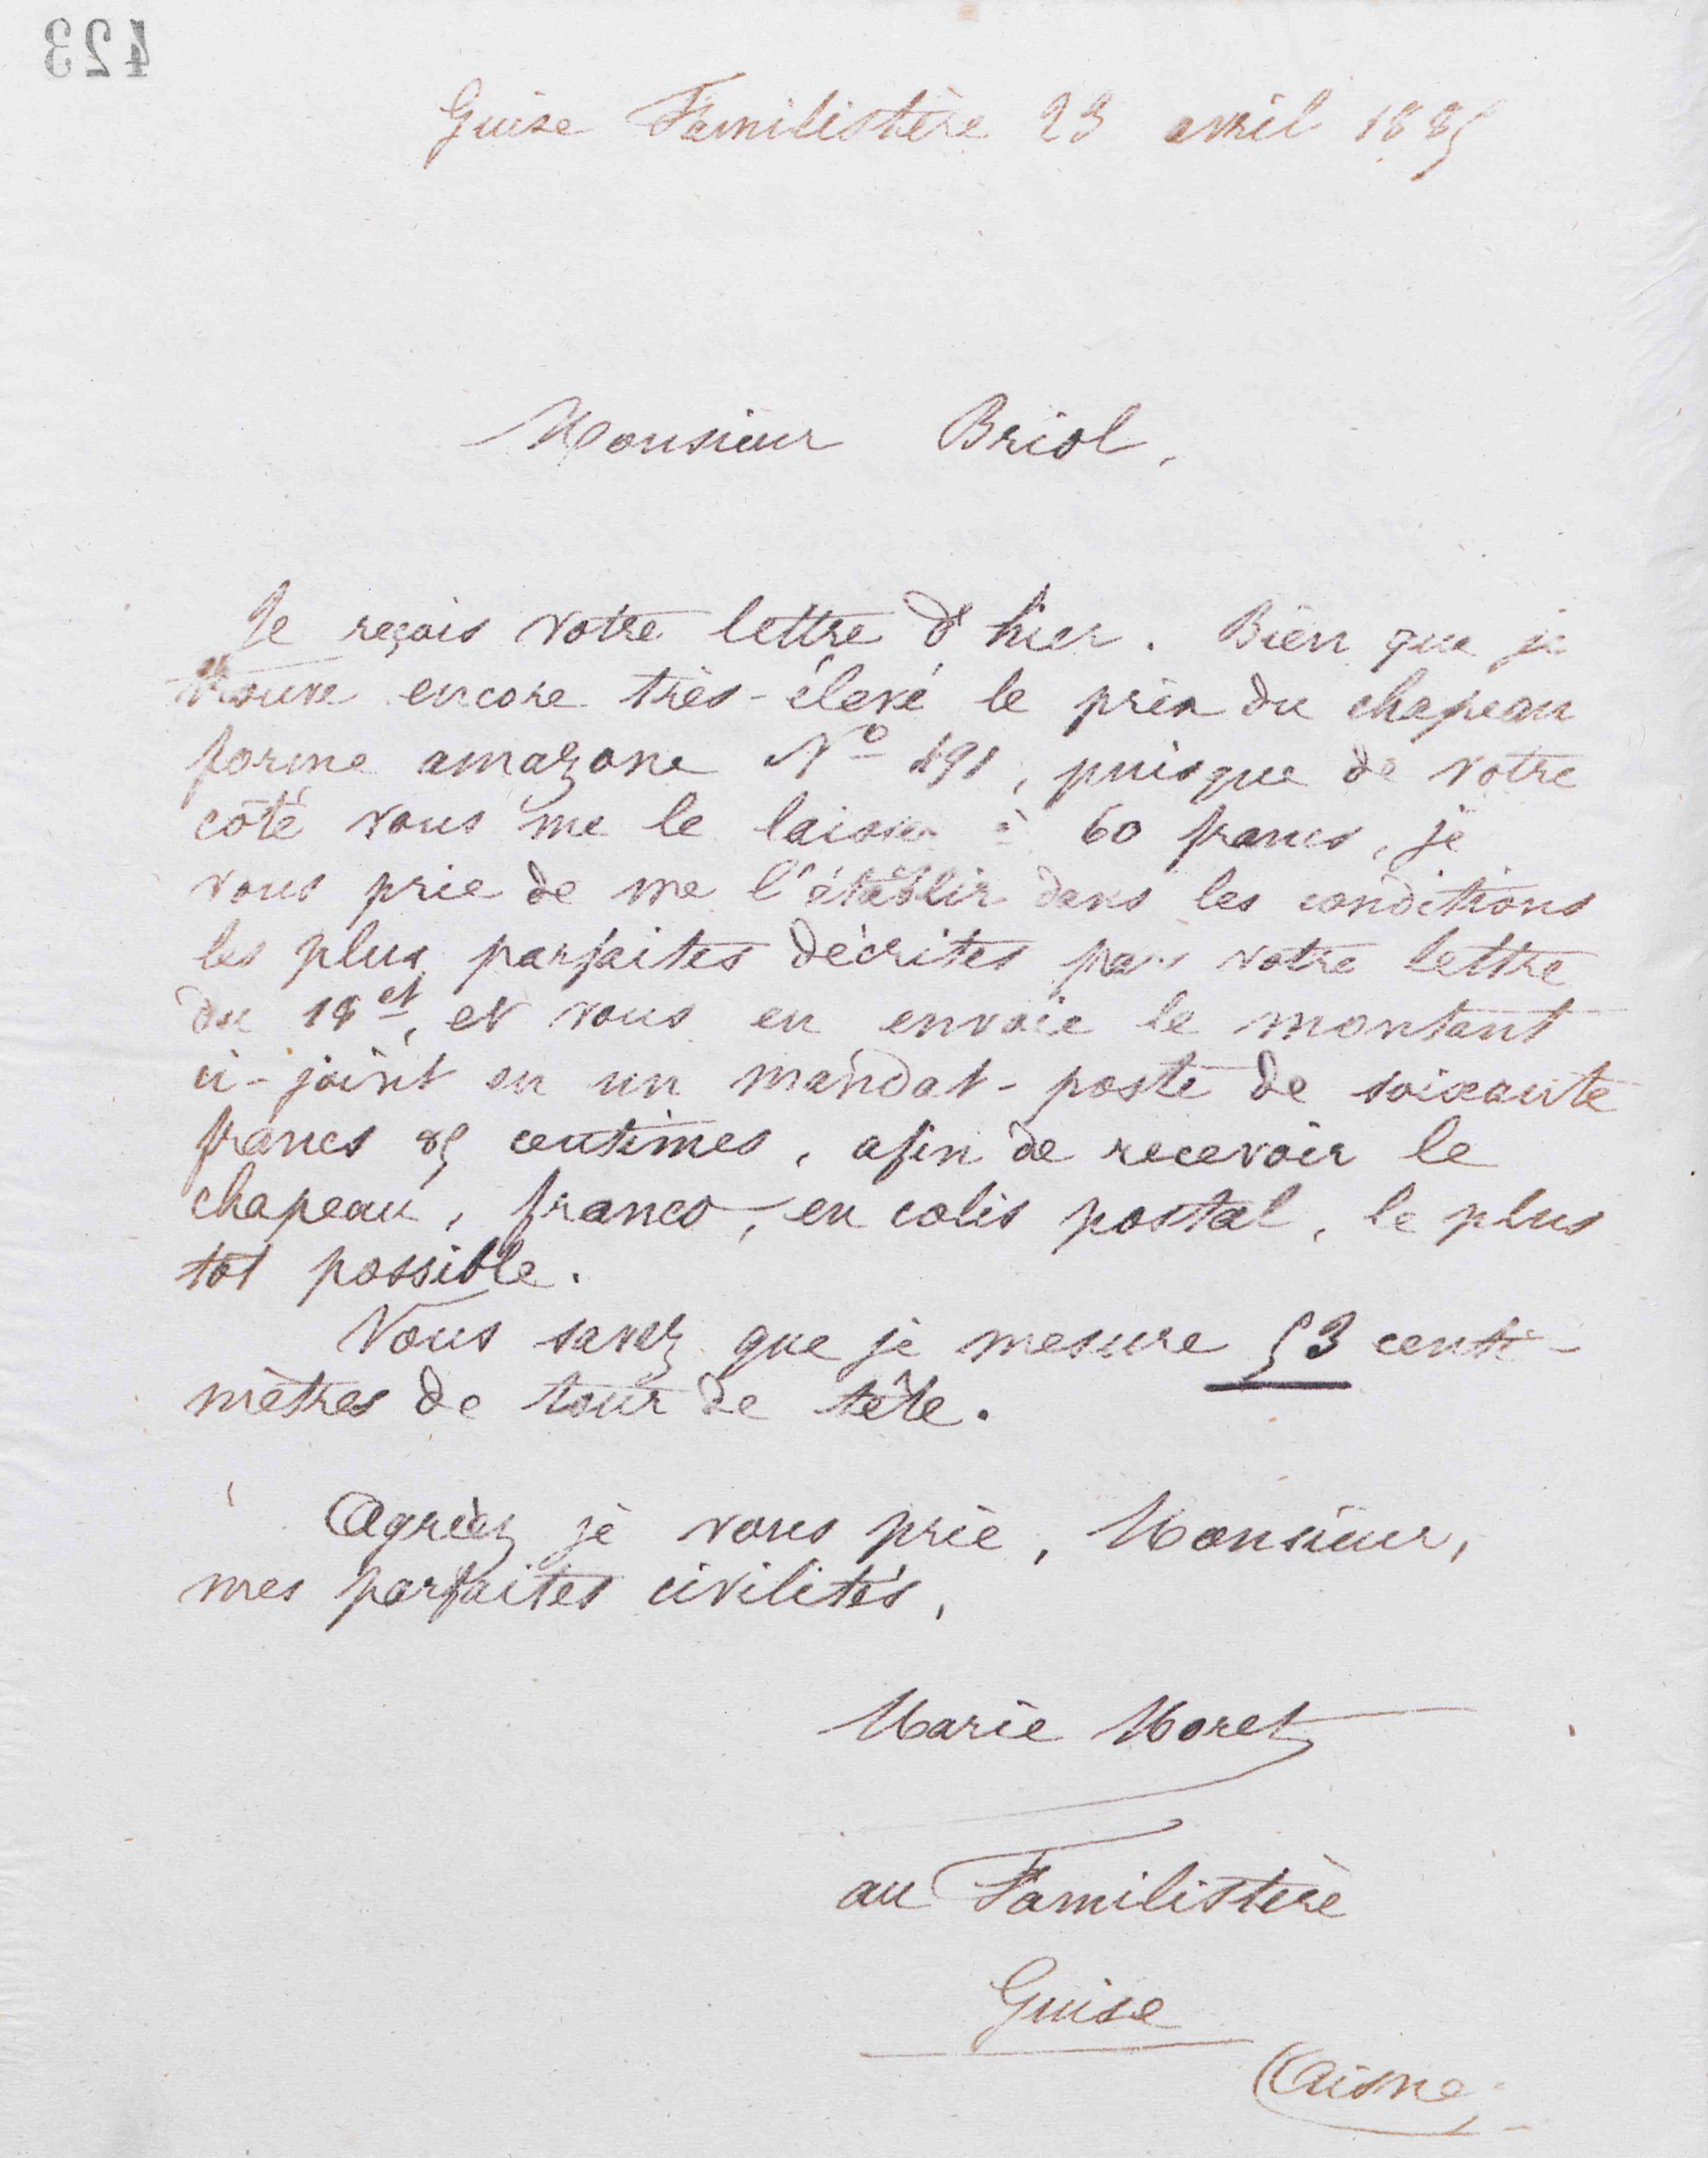 423
Guise Familistère 23 avril 1885
Monsieur Briol,
Je reçois votre lettre d'hier. Bien que je
trouve encore très-élevé le prix du chapeau
forme amazone No 191, puisque de votre
côté vous me le laissez à 60 francs, je
vous prie de me l'établir dans les conditions
les plus parfaites décrites par votre lettre
du 18 ct, et vous en envoie le montant
ci-joint en un mandat-poste de soixante
francs 85 centimes, afin de recevoir le
chapeau, franco, en colis postal, le plus
tôt possible.
Vous savez que je mesure 53 centi-
mètres de tour de tête.
Agréez je vous prie, Monsieur,
mes parfaites civilités,
Marie Moret
au Familistère
Guise
(Aisne)